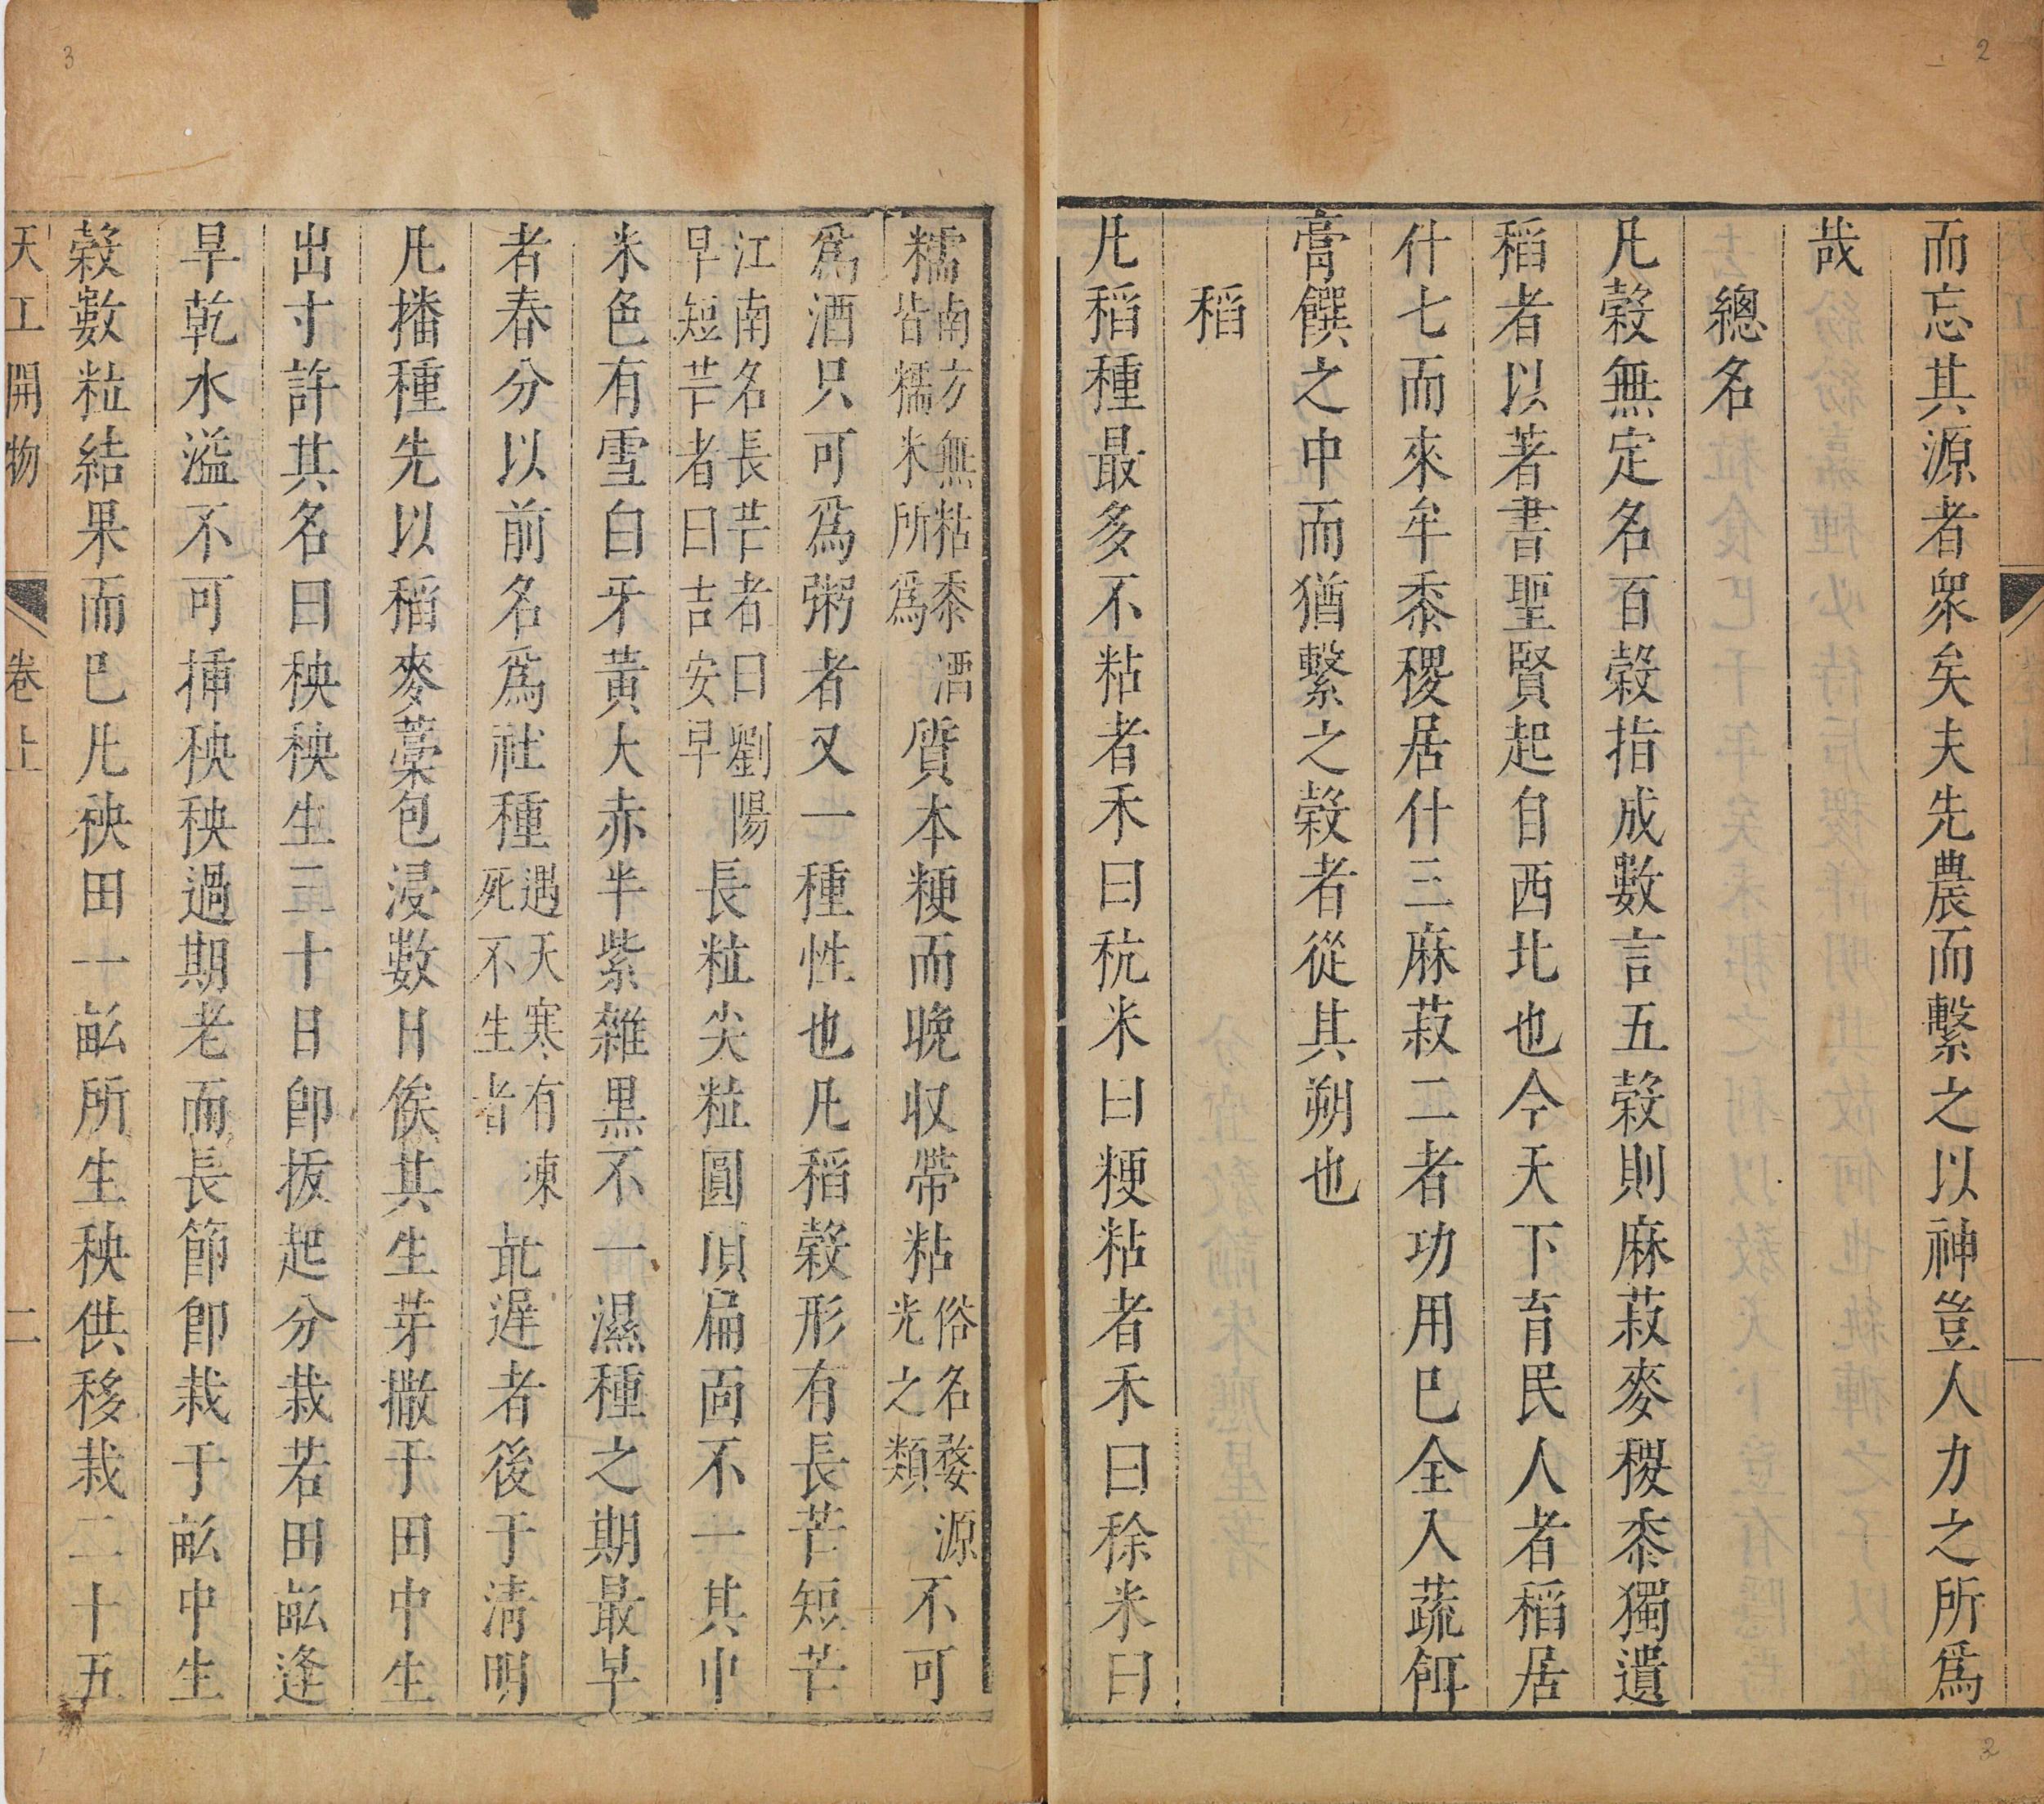 2
而忘其源者衆矣夫先農而繫之以神豈人力之所爲
哉
總名
凢糓無定名百糓指成數言五糓則麻菽麥稷黍獨遺
稻者以著書聖賢起自西北也今天下育民人者稻居
什七而來牟黍稷居什三麻菽二者功用巳全入蔬餌
膏饌之中而猶繫之糓者從其朔也
稻
凢稻種最多不粘者禾曰秔米曰粳粘者禾曰稌米曰
3
糯南方無粘黍酒皆糯米所爲質本粳而晚収帶粘俗名婺源光之類不可
爲酒只可爲粥者又一種性也凢稻糓形有長芒短芒
江南名長芒者曰劉陽早短芒者曰吉安早長粒尖粒圓頂扁面不一其中
米色有雪白牙黃大赤半紫雜黑不一濕種之期最早
者春分以前名爲社種遇天寒有凍死不生者最遲者後于淸明
凢播種先以稻麥藁包浸數日俟其生芽撒于田中生
出寸許其名曰秧秧生三十日卽拔起分栽若田畝逢
旱乾水溢不可揷秧秧過期老而長節卽栽于畝中生
糓數粒結果而巳凢秧田一畝所生秧供移栽二十五
天工開物 卷上 二